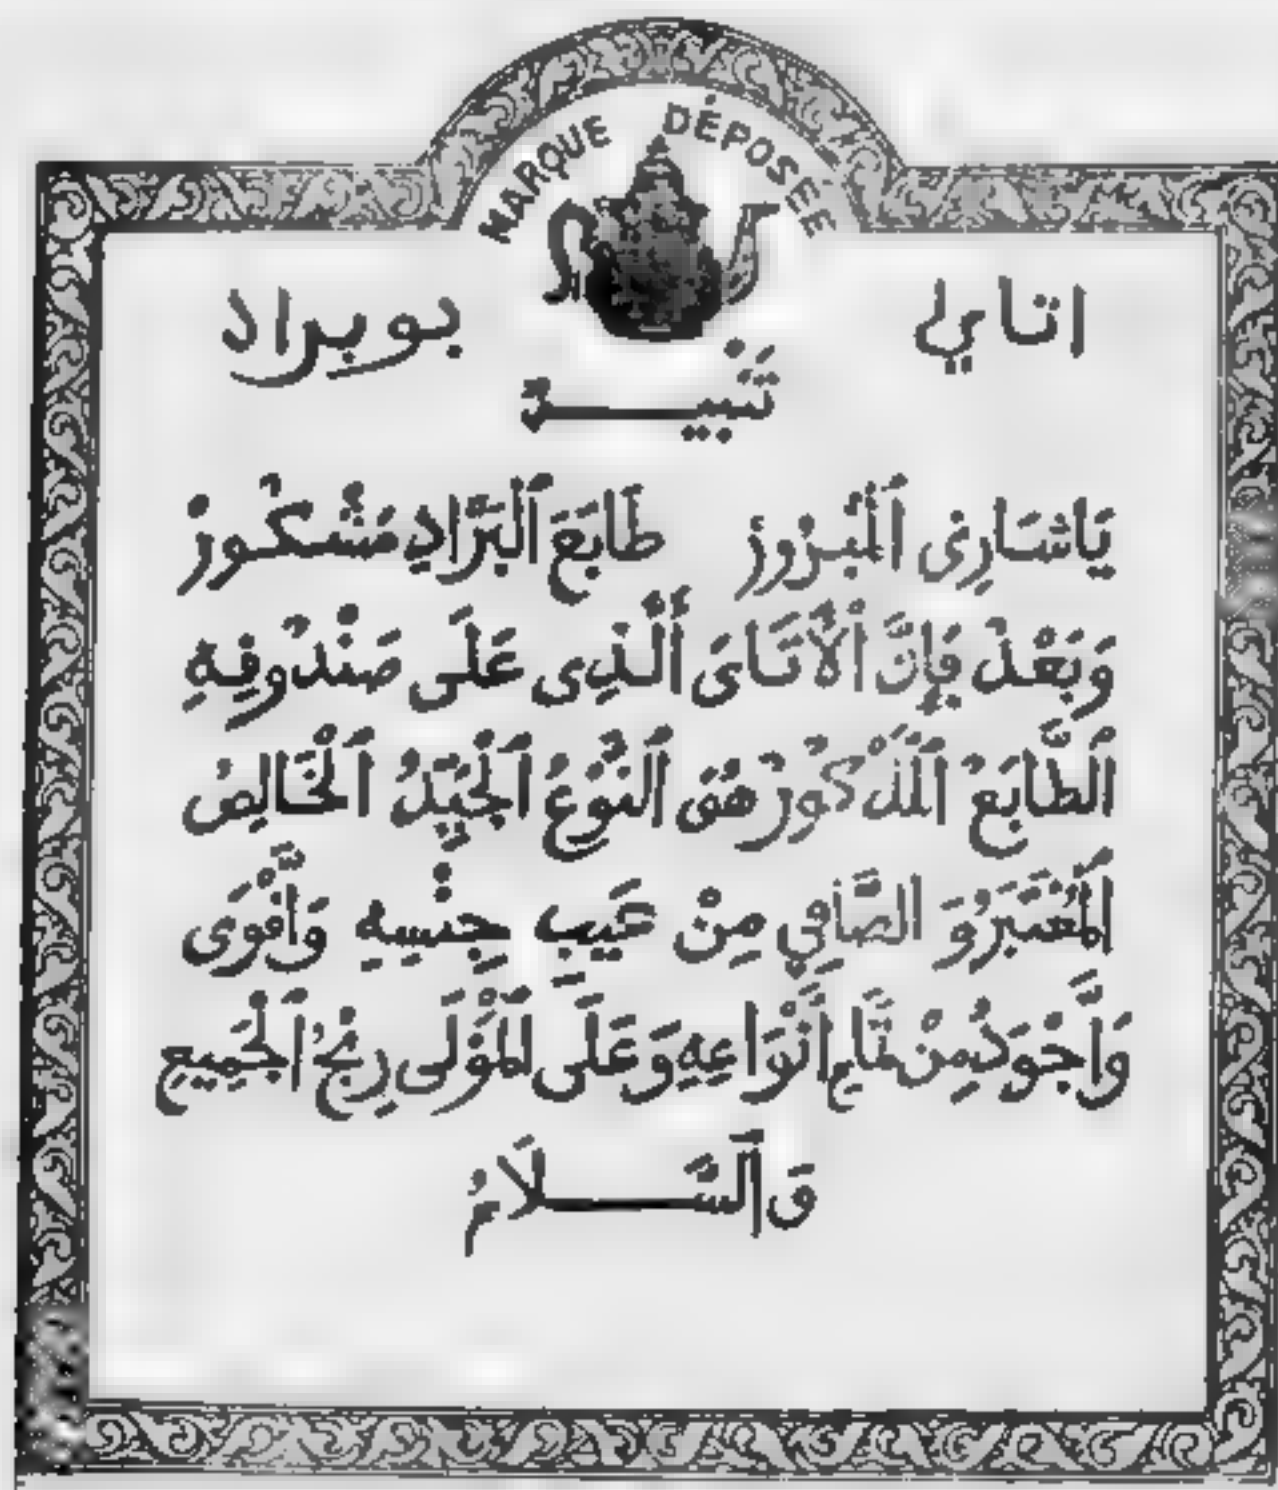 MARQUE DÉPOSÉE
اتاي بوبراد
تَنْبِيـــــهٌ
يَاشَارِى ٱلْمَبْرُوزْ طَابَعَ ٱلْبَرَّادِ مَشْكُورْ
وَبَعْدُ فَإِنَّ ٱلْأَتَاىَ ٱلَّذِى عَلَى صَنْدُوقِهِ
ٱلطَّابَعُ ٱلْمَذْكُورُ هُوَ ٱلنَّوْعُ ٱلْجَيِّدُ ٱلْخَالِصُ
ٱلْمُعْتَبَرُ وَ الصَّافِي مِنْ عَيْبِ جِنْسِهِ وَأَقْوَى
وَأَجْوَدُ مِنْ تَمَامِ أَنْوَاعِهِ وَعَلَى ٱلْمَوْلَى رِبْحُ ٱلْجَمِيعِ
وَ ٱلسَّـــــلَامُ